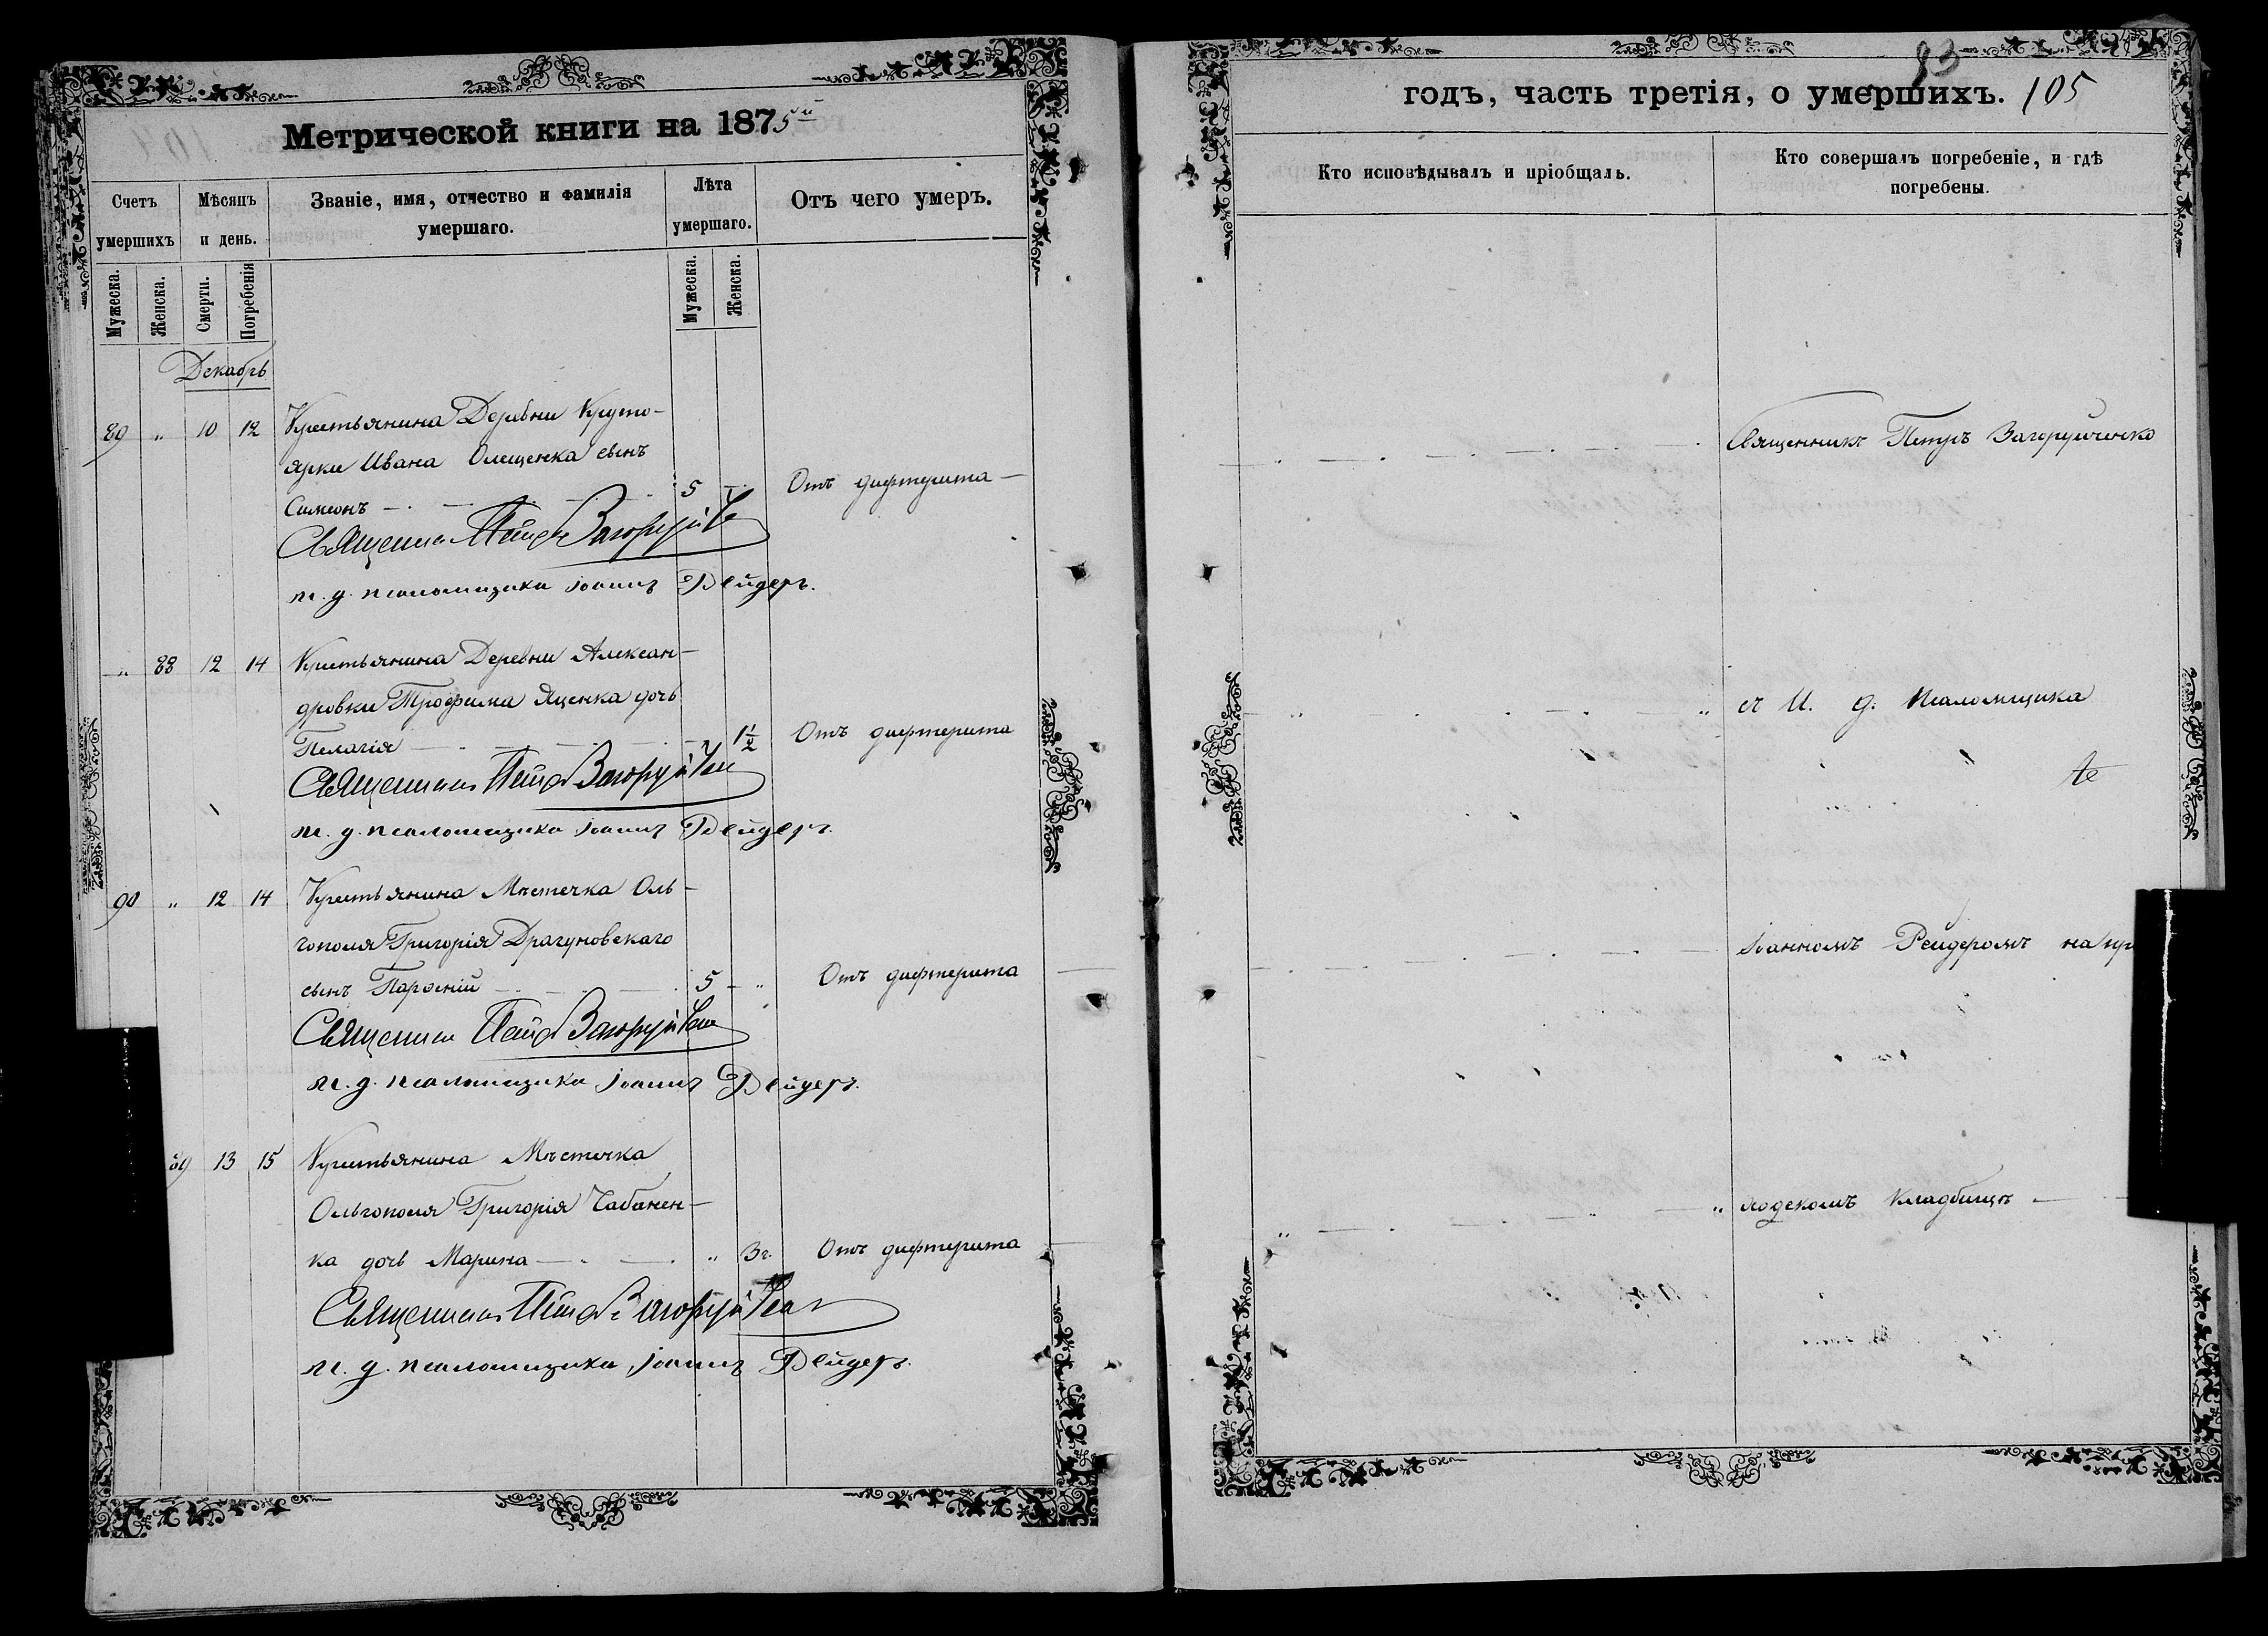 Метрической книги на 1875ый
Счетъ умершихъ
Мѣсяцъ и день.
Званіе, имя, отчество и фамилія умершаго.
Лѣта умершаго.
Отъ чего умеръ.
Мужеска.
Женска.
Смерти.
Погребенія
Мужеска.
Женска.
Декабрь
89 " 10 12 Крестьянина Деревни Круто-
ярки Ивана Олещенка сынъ
Симеонъ 5 Отъ дифтерита
Священникъ Петръ Загоруйченко
и. д. псаломщика Іоаннъ Рейдеръ.
" 88 12 14 Крестьянина Деревни Алексан-
дровки Трофима Яценка дочь
Пелагія " 1½ Отъ дифтерита
Священникъ Петръ Загоруйченко
и. д. псаломщика Іоаннъ Рейдеръ.
90 " 12 14 Крестьянина Мѣстечка Оль-
гополя Григорія Драгуновскаго
сынъ 5 " Отъ дифтерита
Священникъ Петръ Загоруйченко
и. д. псаломщика Іоаннъ Рейдеръ.
89 13 15 Крестьянина Мѣстечка
Ольгополя Григорія Чабанен-
ка дочь Марина " 3г. Отъ дифтерита
Священникъ Петръ Загоруйченко
и. д. псаломщика Іоаннъ Рейдеръ.
93
годъ, часть третія, о умершихъ. 105
Кто исповѣдывалъ и пріобщалъ.
Кто совершалъ погребеніе, и гдѣ погребены.
Священникъ Петръ Загоруйченко
съ И. д. Псаломщика
Іоанномъ Рейдеромъ на при
ходскомъ кладбищѣ